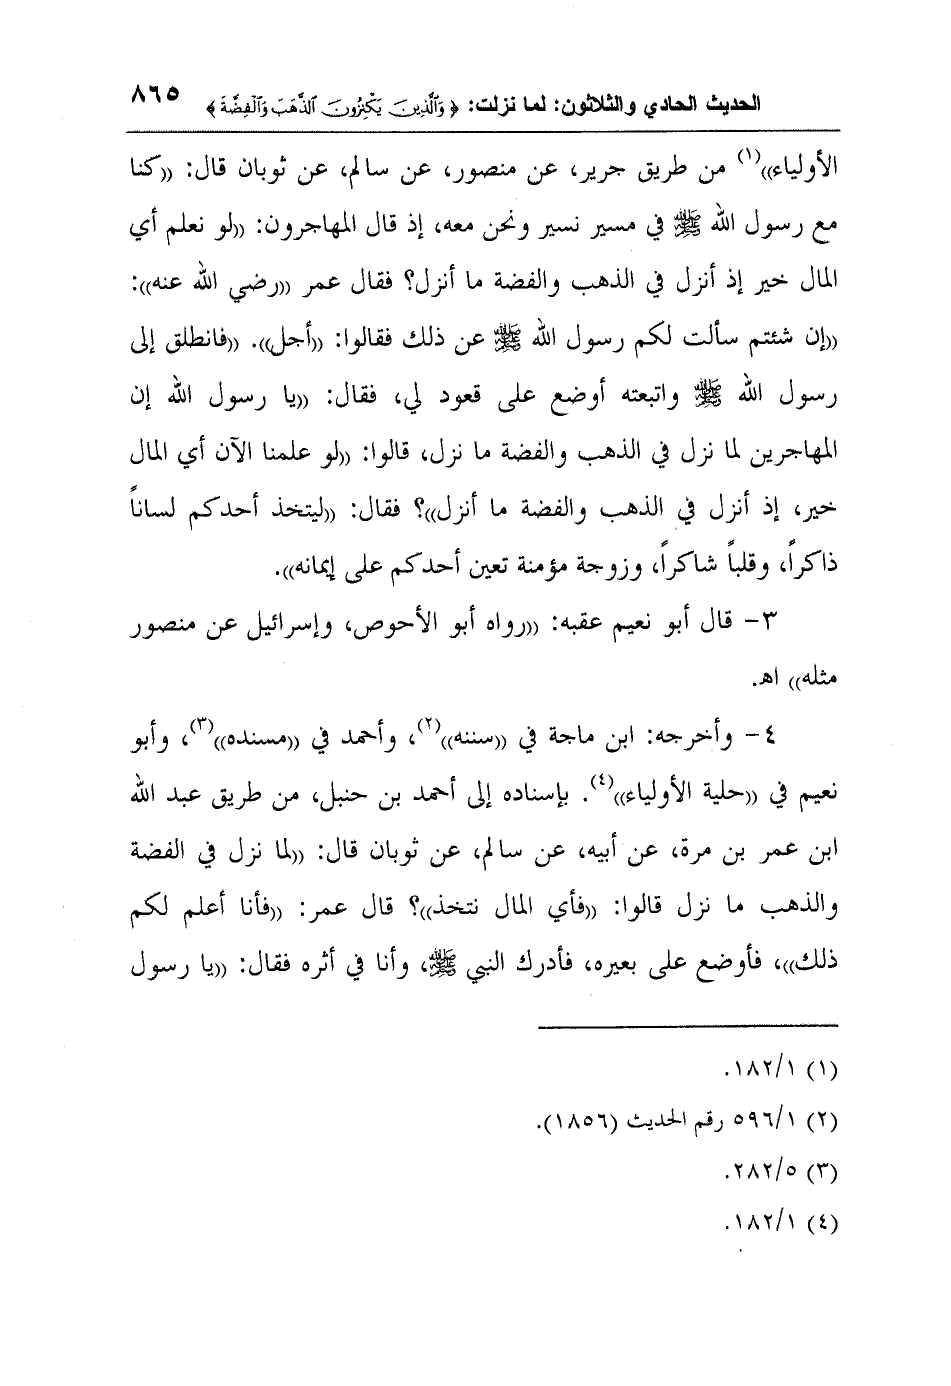 الحديث الحادي والثلاثون: لما نزلت: ﴿ وَٱلَّذِينَ يَكْنِزُونَ ٱلذَّهَبَ وَٱلْفِضَّةَ ﴾ ٨٦٥
الأولياء))(١) من طريق جرير، عن منصور، عن سالم، عن ثوبان قال: ((كنا
مع رسول الله ﷺ في مسير نسير ونحن معه، إذ قال المهاجرون: ((لو نعلم أي
المال خير إذ أنزل في الذهب والفضة ما أنزل؟ فقال عمر ((رضي الله عنه)):
((إن شئتم سألت لكم رسول الله ﷺ عن ذلك فقالوا: ((أجل)). ((فانطلق إلى
رسول الله ﷺ واتبعته أوضع على قعود لي، فقال: ((يا رسول الله إن
المهاجرين لما نزل في الذهب والفضة ما نزل، قالوا: ((لو علمنا الآن أي المال
خير، إذ أنزل في الذهب والفضة ما أنزل))؟ فقال: ((ليتخذ أحدكم لساناً
ذاكراً، وقلباً شاكراً، وزوجة مؤمنة تعين أحدكم على إيمانه)).
٣- قال أبو نعيم عقبه: ((رواه أبو الأحوص، وإسرائيل عن منصور
مثله)) اهـ.
٤- وأخرجه: ابن ماجة في ((سننه))(٢)، وأحمد في ((مسنده))(٣)، وأبو
نعيم في ((حلية الأولياء))(٤). بإسناده إلى أحمد بن حنبل، من طريق عبد الله
ابن عمر بن مرة، عن أبيه، عن سالم، عن ثوبان قال: ((لما نزل في الفضة
والذهب ما نزل قالوا: ((فأي المال نتخذ))؟ قال عمر: ((فأنا أعلم لكم
ذلك))، فأوضع على بعيره، فأدرك النبي ﷺ، وأنا في أثره فقال: ((يا رسول
(١) ١٨٢/١.
(٢) ٥٩٦/١ رقم الحديث (١٨٥٦).
(٣) ٢٨٢/٥.
(٤) ١٨٢/١.